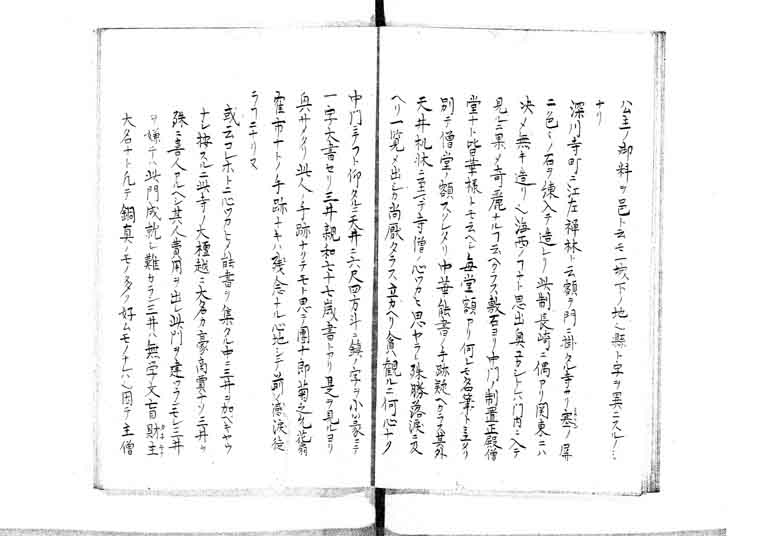 公主ノ御料ヲ邑ト云モ一城下ノ地ヘ縣ト字ヲ異ニスルノミ
ナリ
深川寺町ニ江左禪林ト云額ヲ門ニ掛タル寺アリ塞ノ屏
二色ノ石ヲ練入テ造レリ此制長崎ニ偶アリ関東ニハ
決メ無キ造リ海西ノコナト思出奥ユカシトレハ門内ニ入テ
見ルニ果メ奇麗ナルコ云ヘクラス敷石ヨリ中門ノ制置正殿僧
堂ナト皆華様トモ云ヘシ毎堂額アリ何レモ名筆ト
別テ僧堂ノ額スクレタリ中華能書ノ手跡疑ヘクラス其外
天井机牀ニ至ニテ寺僧ノ心ツカヒ思ヤラレ殊勝落涙ニ及
ヘリ一覧メ出シカ尚厭タラス立カヘリ貪観ルニ何心ナク
中門ヲフト仰タルニ天井ニ六尺四方斗ニ鎮ノ字ヲ小篆ニテ
一字大書セリ三井親和七十七歳書トアリ是ヲ見ルヨリ
興サメタリ此人ノ手跡ナリテモト思テ團十郎菊之丞
市ナトノ手跡ナキハ残念ナル心地シテ前ノ感涙徒
ラコニナリヌ
或云コレホトニ心ツカヒノ能書ヲ集タル中ニ三井ヲ加ヘキヤウ
ナシ按スルニ此寺ノ大檀越ニ大名カ豪商買ナリ三井ヲ
殊ニ喜人アルヘシ其人費用ヲ出シ此門ヲ建フランモシ三井
ヲ嫌テハ此門成就シ難カラン三井ハ無学文盲財主
大名ナト凡テ銅臭ノモノ多ク好ムモノナレハ因テ主僧